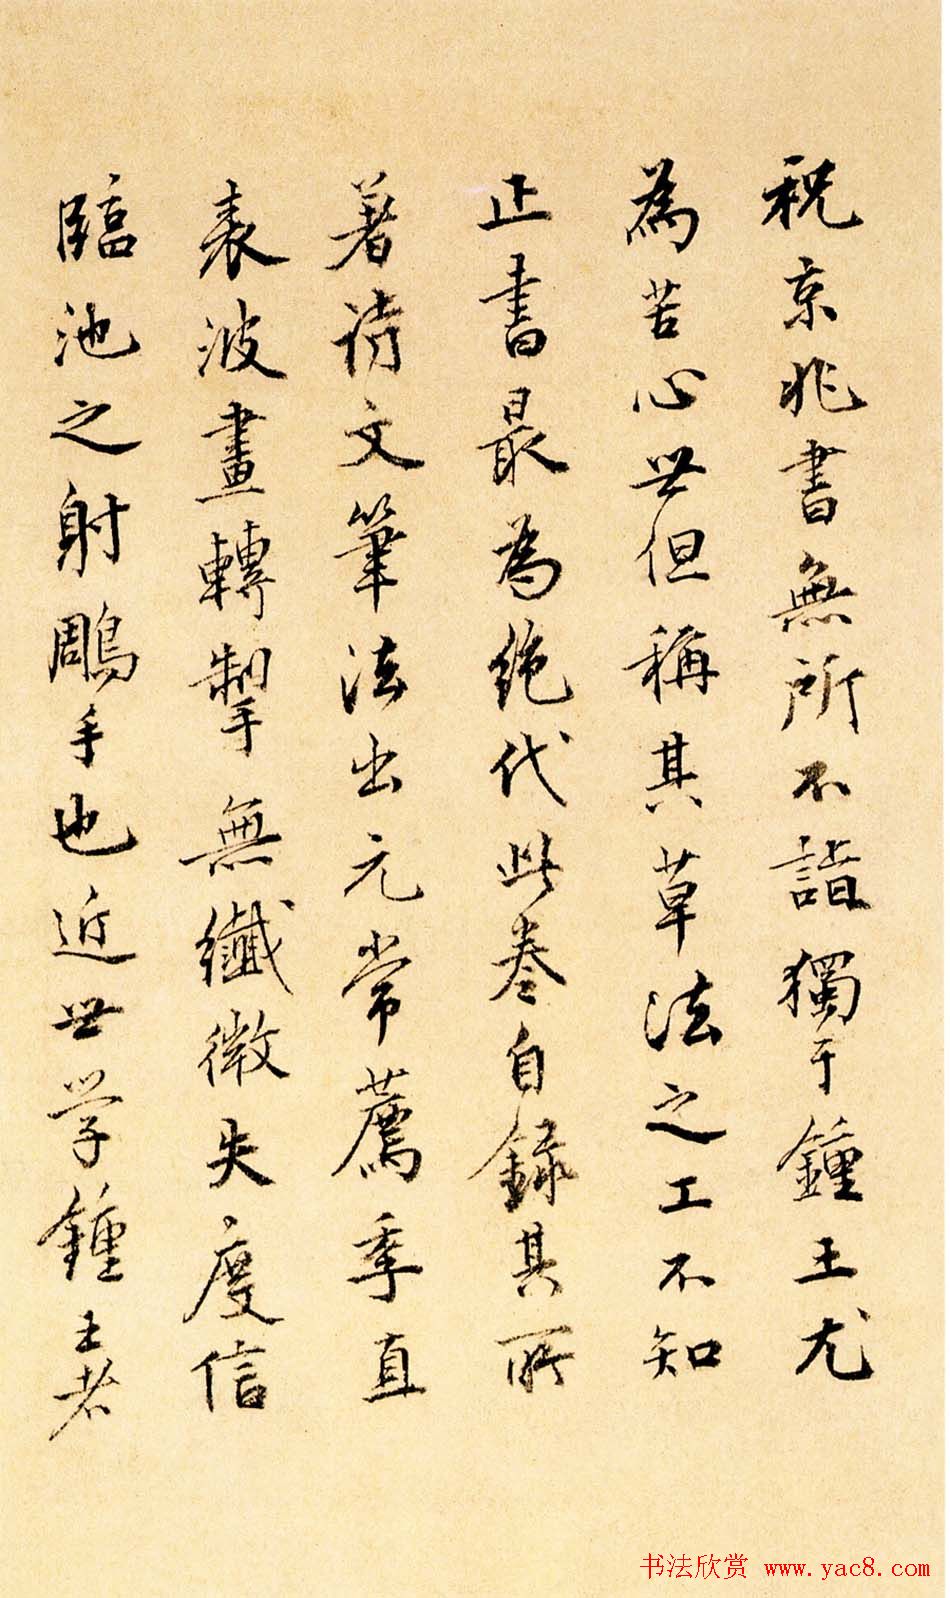 祝京兆書無所不詣獨于鍾王尤
為苦心世但稱其草法之工不知
正書最為絶代此卷自録其所
著詩文筆法出元常薦季直
表波畫轉掣無纖微失度信
臨池之射鵰手也近世学鍾王者
书法欣赏 www.yac8.com